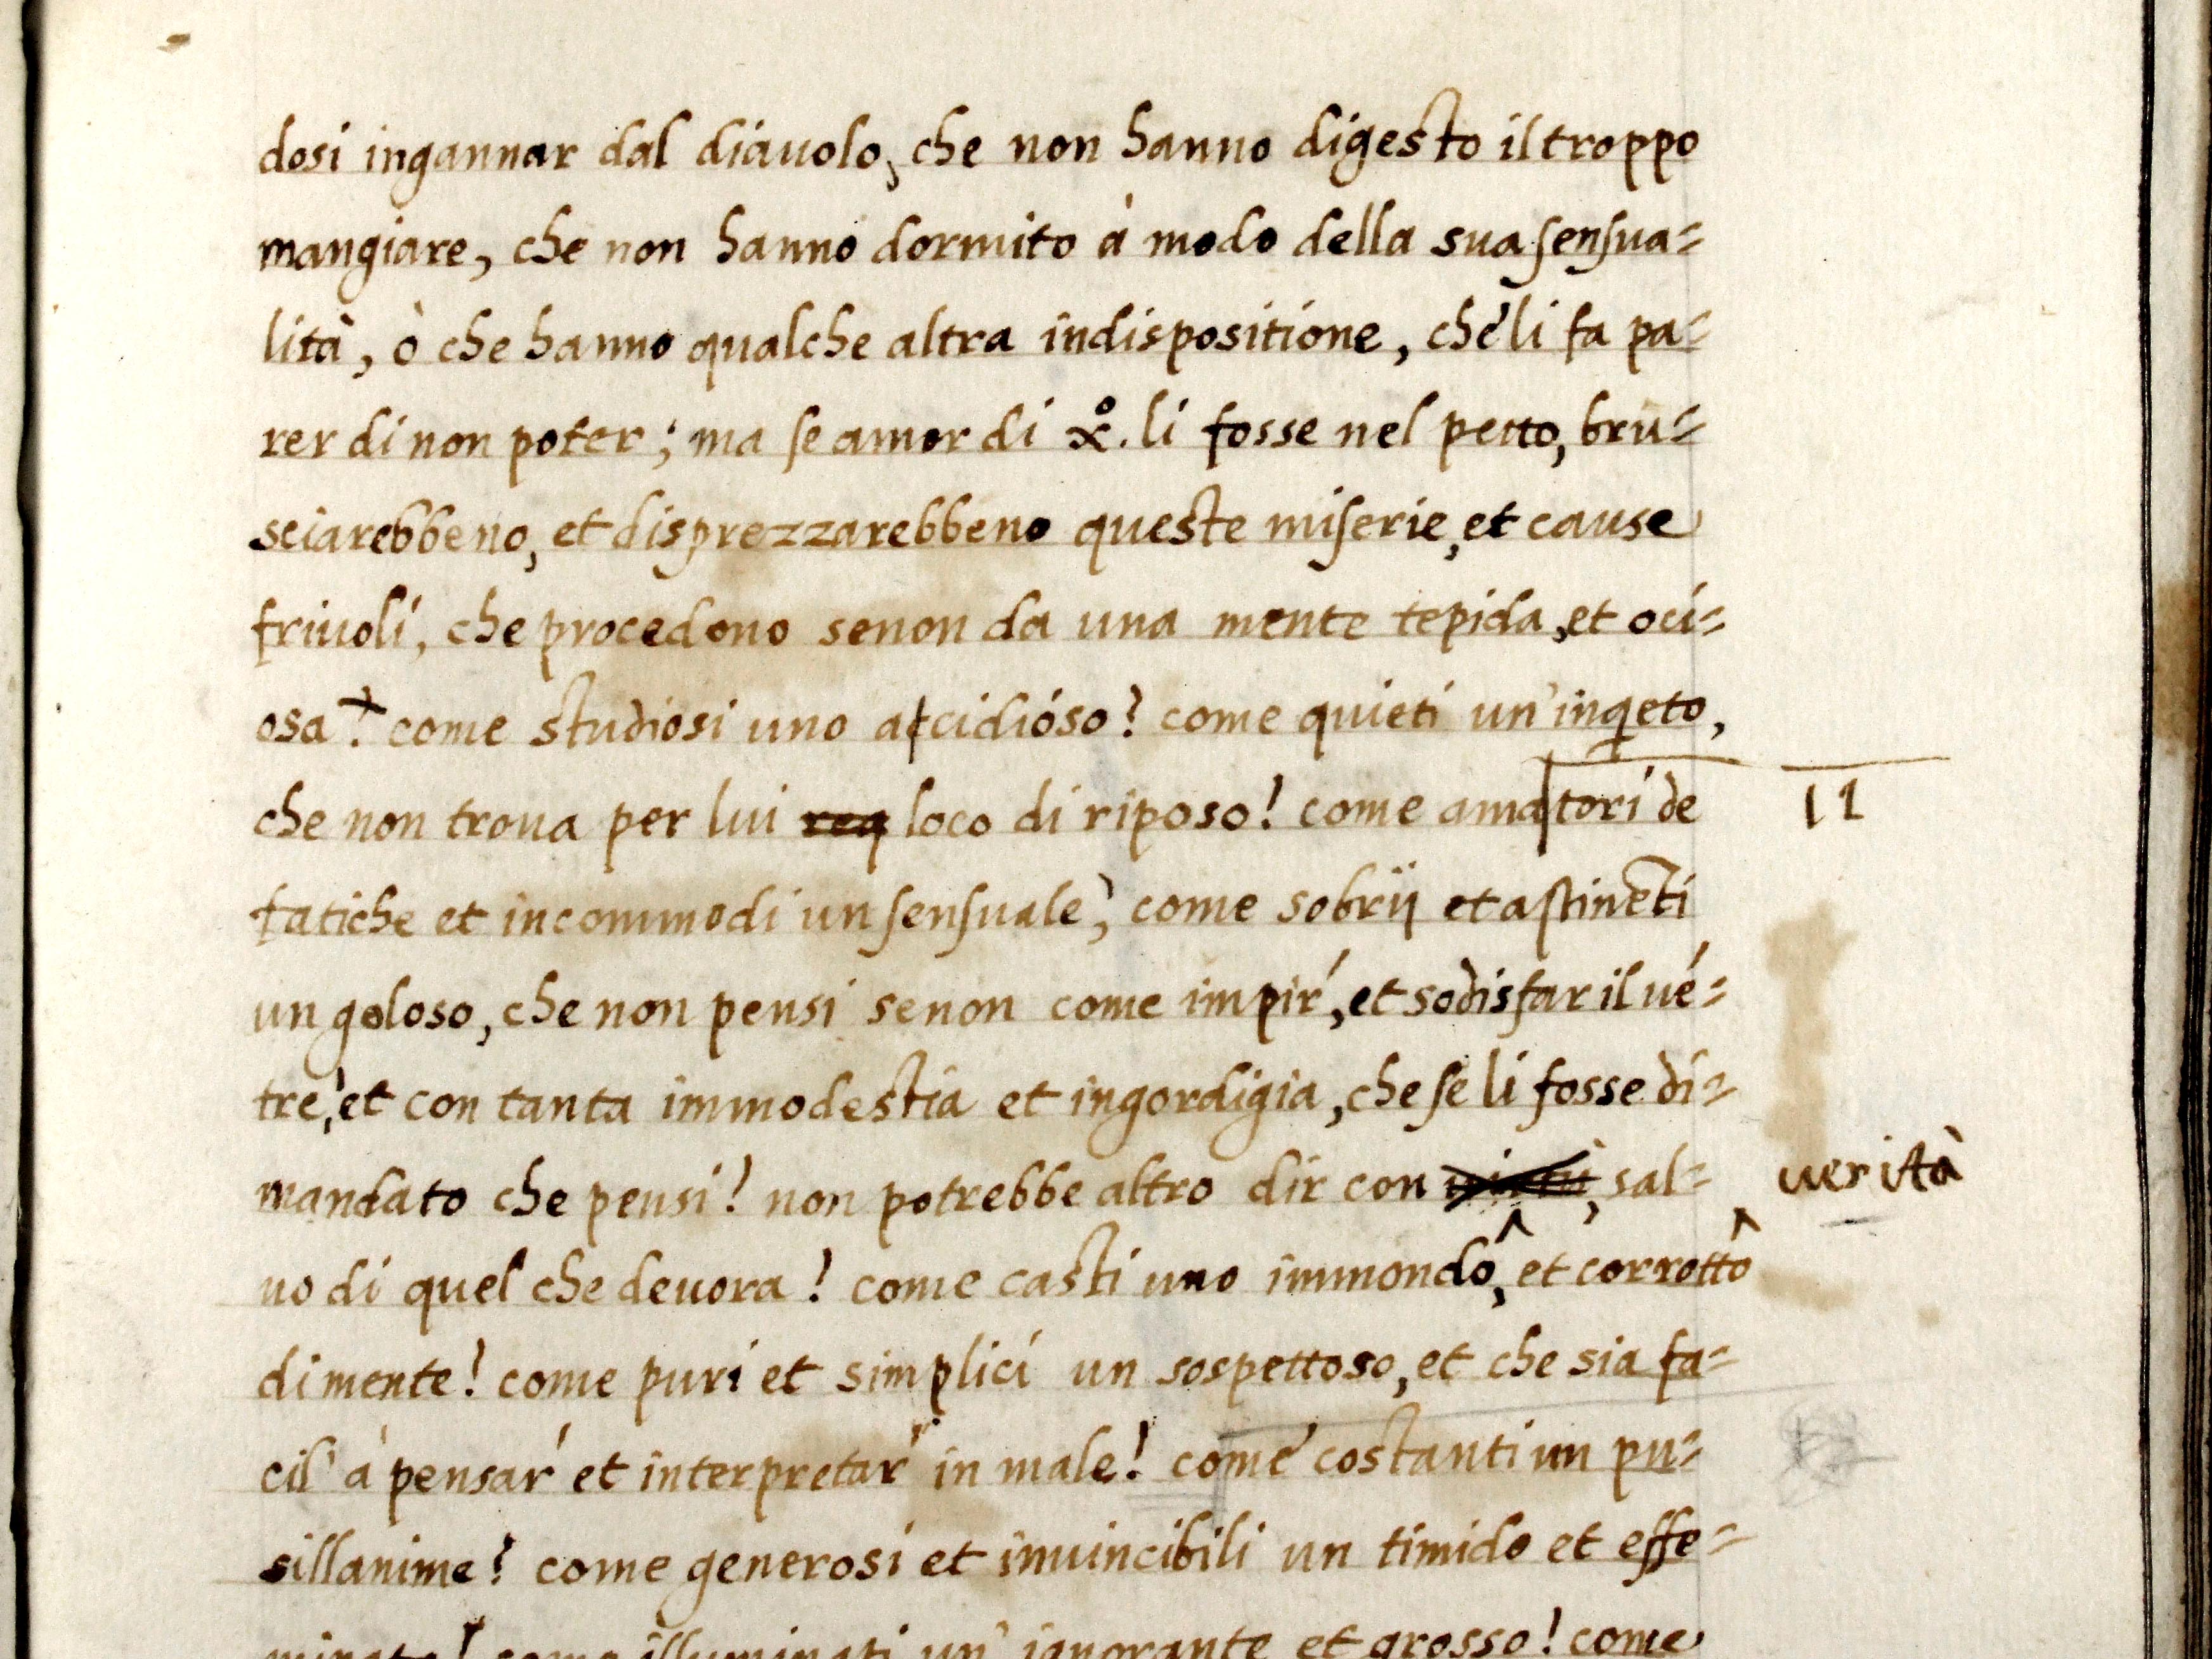 dosi ingannar dal diauolo, che non hanno digesto il troppo
mangiare, che non hanno dormito à modo della sua ſenſua=
lità, ò che hanno qualche altra indispositione, che li fa pa=
rer di non poter; ma ſe amor di x͐. li fosse nel petto, bru=
sciarebbeno, et disprezzarebbeno queste miſerie, et cause
friuoli, che procedono senon da una mente tepida, et oci=
osa? come studiosi uno accidióso? come quieti un' inqeto,
che non troua per lui req loco di riposo! come amatori de
11
fatiche et incommodi un ſenſuale, come sobrij et aſtinēti
un goloso, che non pensi senon come impir, et sodisfar il uē=
tre, et con tanta immodestia et ingordigia, che ſe li fosse di=
mandato che pensi! non potrebbe altro dir con , sal=
uerità
uo di quel che deuora! come casti uno immondo, et corrotto
di mente! come puri et simplici un sospettoso, et che sia fa=
cil' à pensar et interpretar in male! come costanti un pu=
sillanime? come generosi et inuincibili un timido et effe=
minato! come illuminati un' ignorante et grosso! come